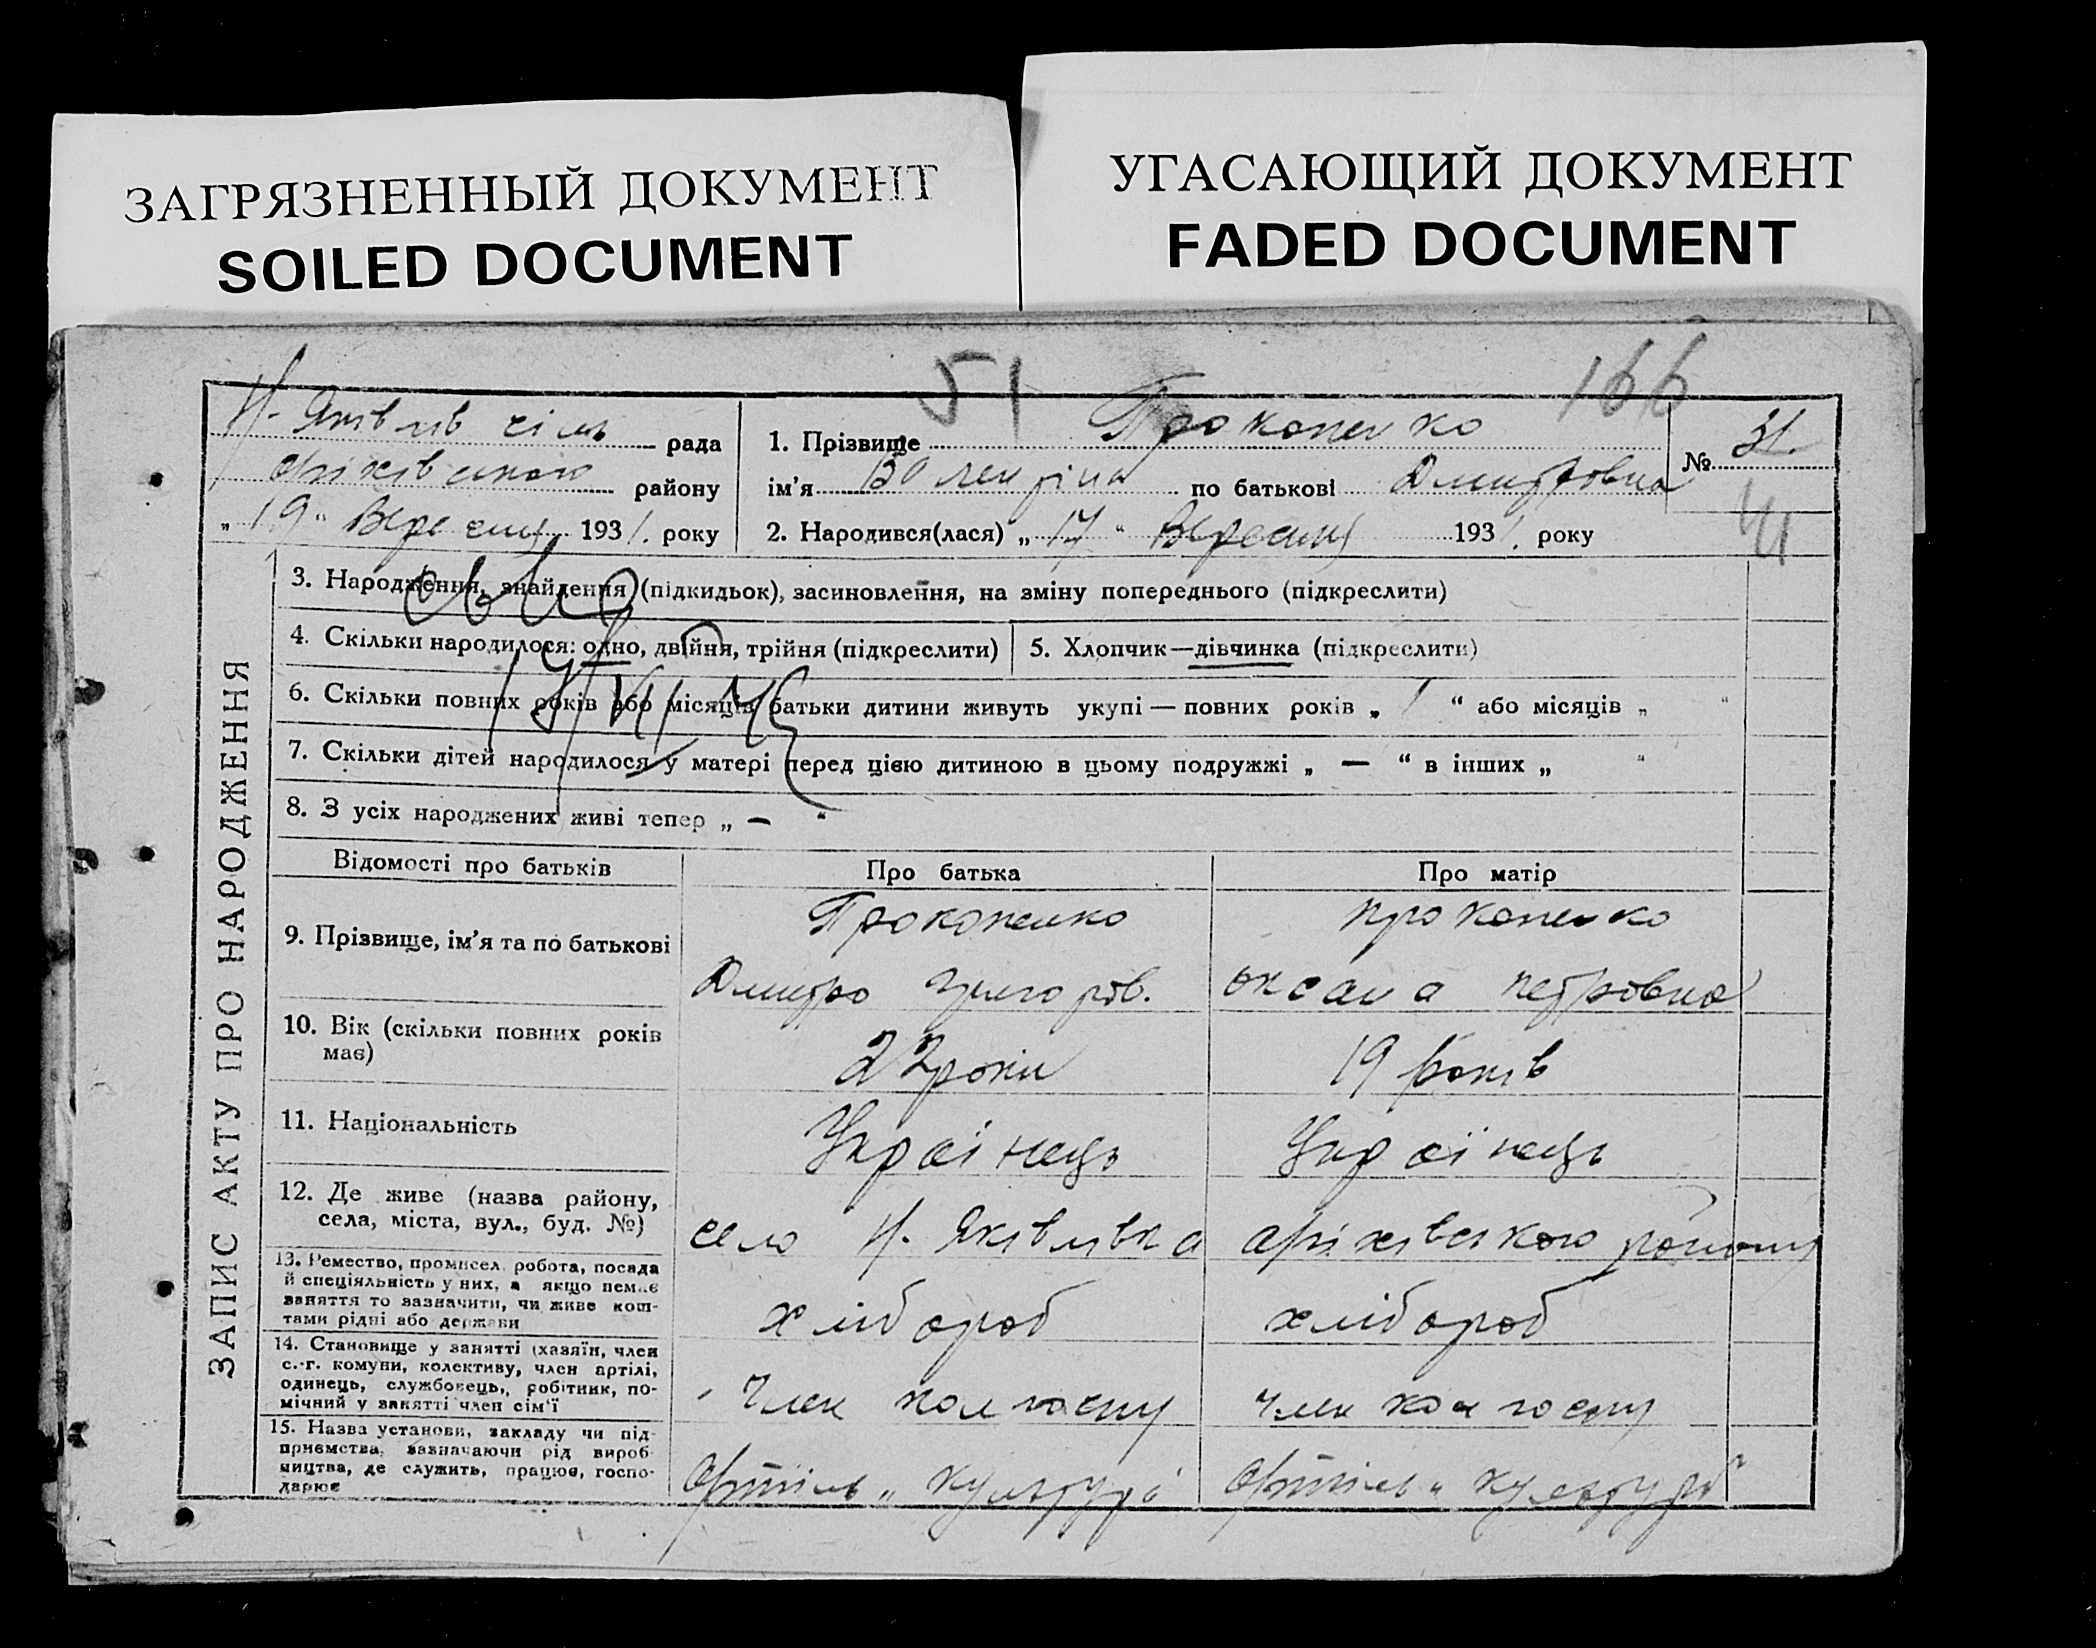 ЗАГРЯЗНЕННЫЙ ДОКУМЕНТ
SOILED DOCUMENT
УГАСАЮЩИЙ ДОКУМЕНТ
FADED DOCUMENT
51
166
Н. Яківлів сіль рада
оріхівського району
„ 19 “ Вересня 1931. року
1. Прізвище Прокопенко
ім’я Валентіна по батькові Дмитровна
№ 31.
2. Народився(лася) „ 17 “ Вересня 1931. року
ЗАПИС АКТУ ПРО НАРОДЖЕННЯ
3. Народження, знайдення (підкидьок), засиновлення, на зміну попереднього (підкреслити)
4. Скільки народилося: одно, двійня, трійня (підкреслити)
5. Хлопчик—дівчинка (підкреслити)
6. Скільки повних років або місяців батьки дитини живуть укупі — повних років „ 1 “ або місяців „ “
7. Скільки дітей народилося у матері перед цією дитиною в цьому подружжі „ — “ в інших „ “
8. З усіх народжених живі тепер „ — “
Відомості про батьків
Про батька
Про матір
9. Прізвище, ім’я та по батькові
Прокопенко
Дмитро Григоров.
Прокопенко
Оксана Петровна
10. Вік (скільки повних років
має)
22 роки
19 років
11. Національність
Українець
Українець
12. Де живе (назва району,
села, міста, вул., буд. №)
село Н. Яківлівка оріхівського району
13. Ремество, промисел, робота, посада
й спеціяльність у них, а якщо немає
заняття то зазначити, чи живе кош-
тами рідні або держави
хлібороб
хлібороб
14. Становище у занятті (хазяїн, член
с.-г. комуни, колективу, член артілі,
одинець, службовець, робітник, по-
мічний у занятті член сім’ї
член колгоспу
член колгоспу
15. Назва установи, закладу чи під-
приємства, зазначаючи рід вироб-
ництва, де служить, працює, госпо-
дарює
Артіль „ Культура
Артіль „ Культура “